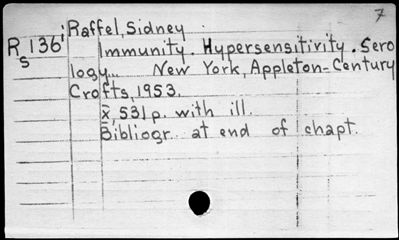 7
Raffel, Sidney
R 136 i Immunity. Hypersensitivity. Sero
s
logy... New York, Appleton-Century
Crofts, 1953.
x, 531 p. with ill.
Bibliogr. at end of chapt.